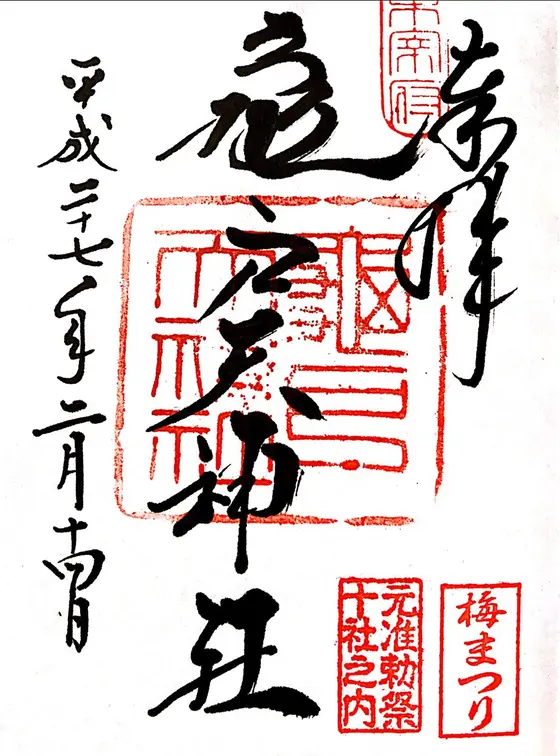 奉拝
東宰府
亀戸天神社
平成二十七年二月十四日
元准勅祭
十社之内
梅まつり